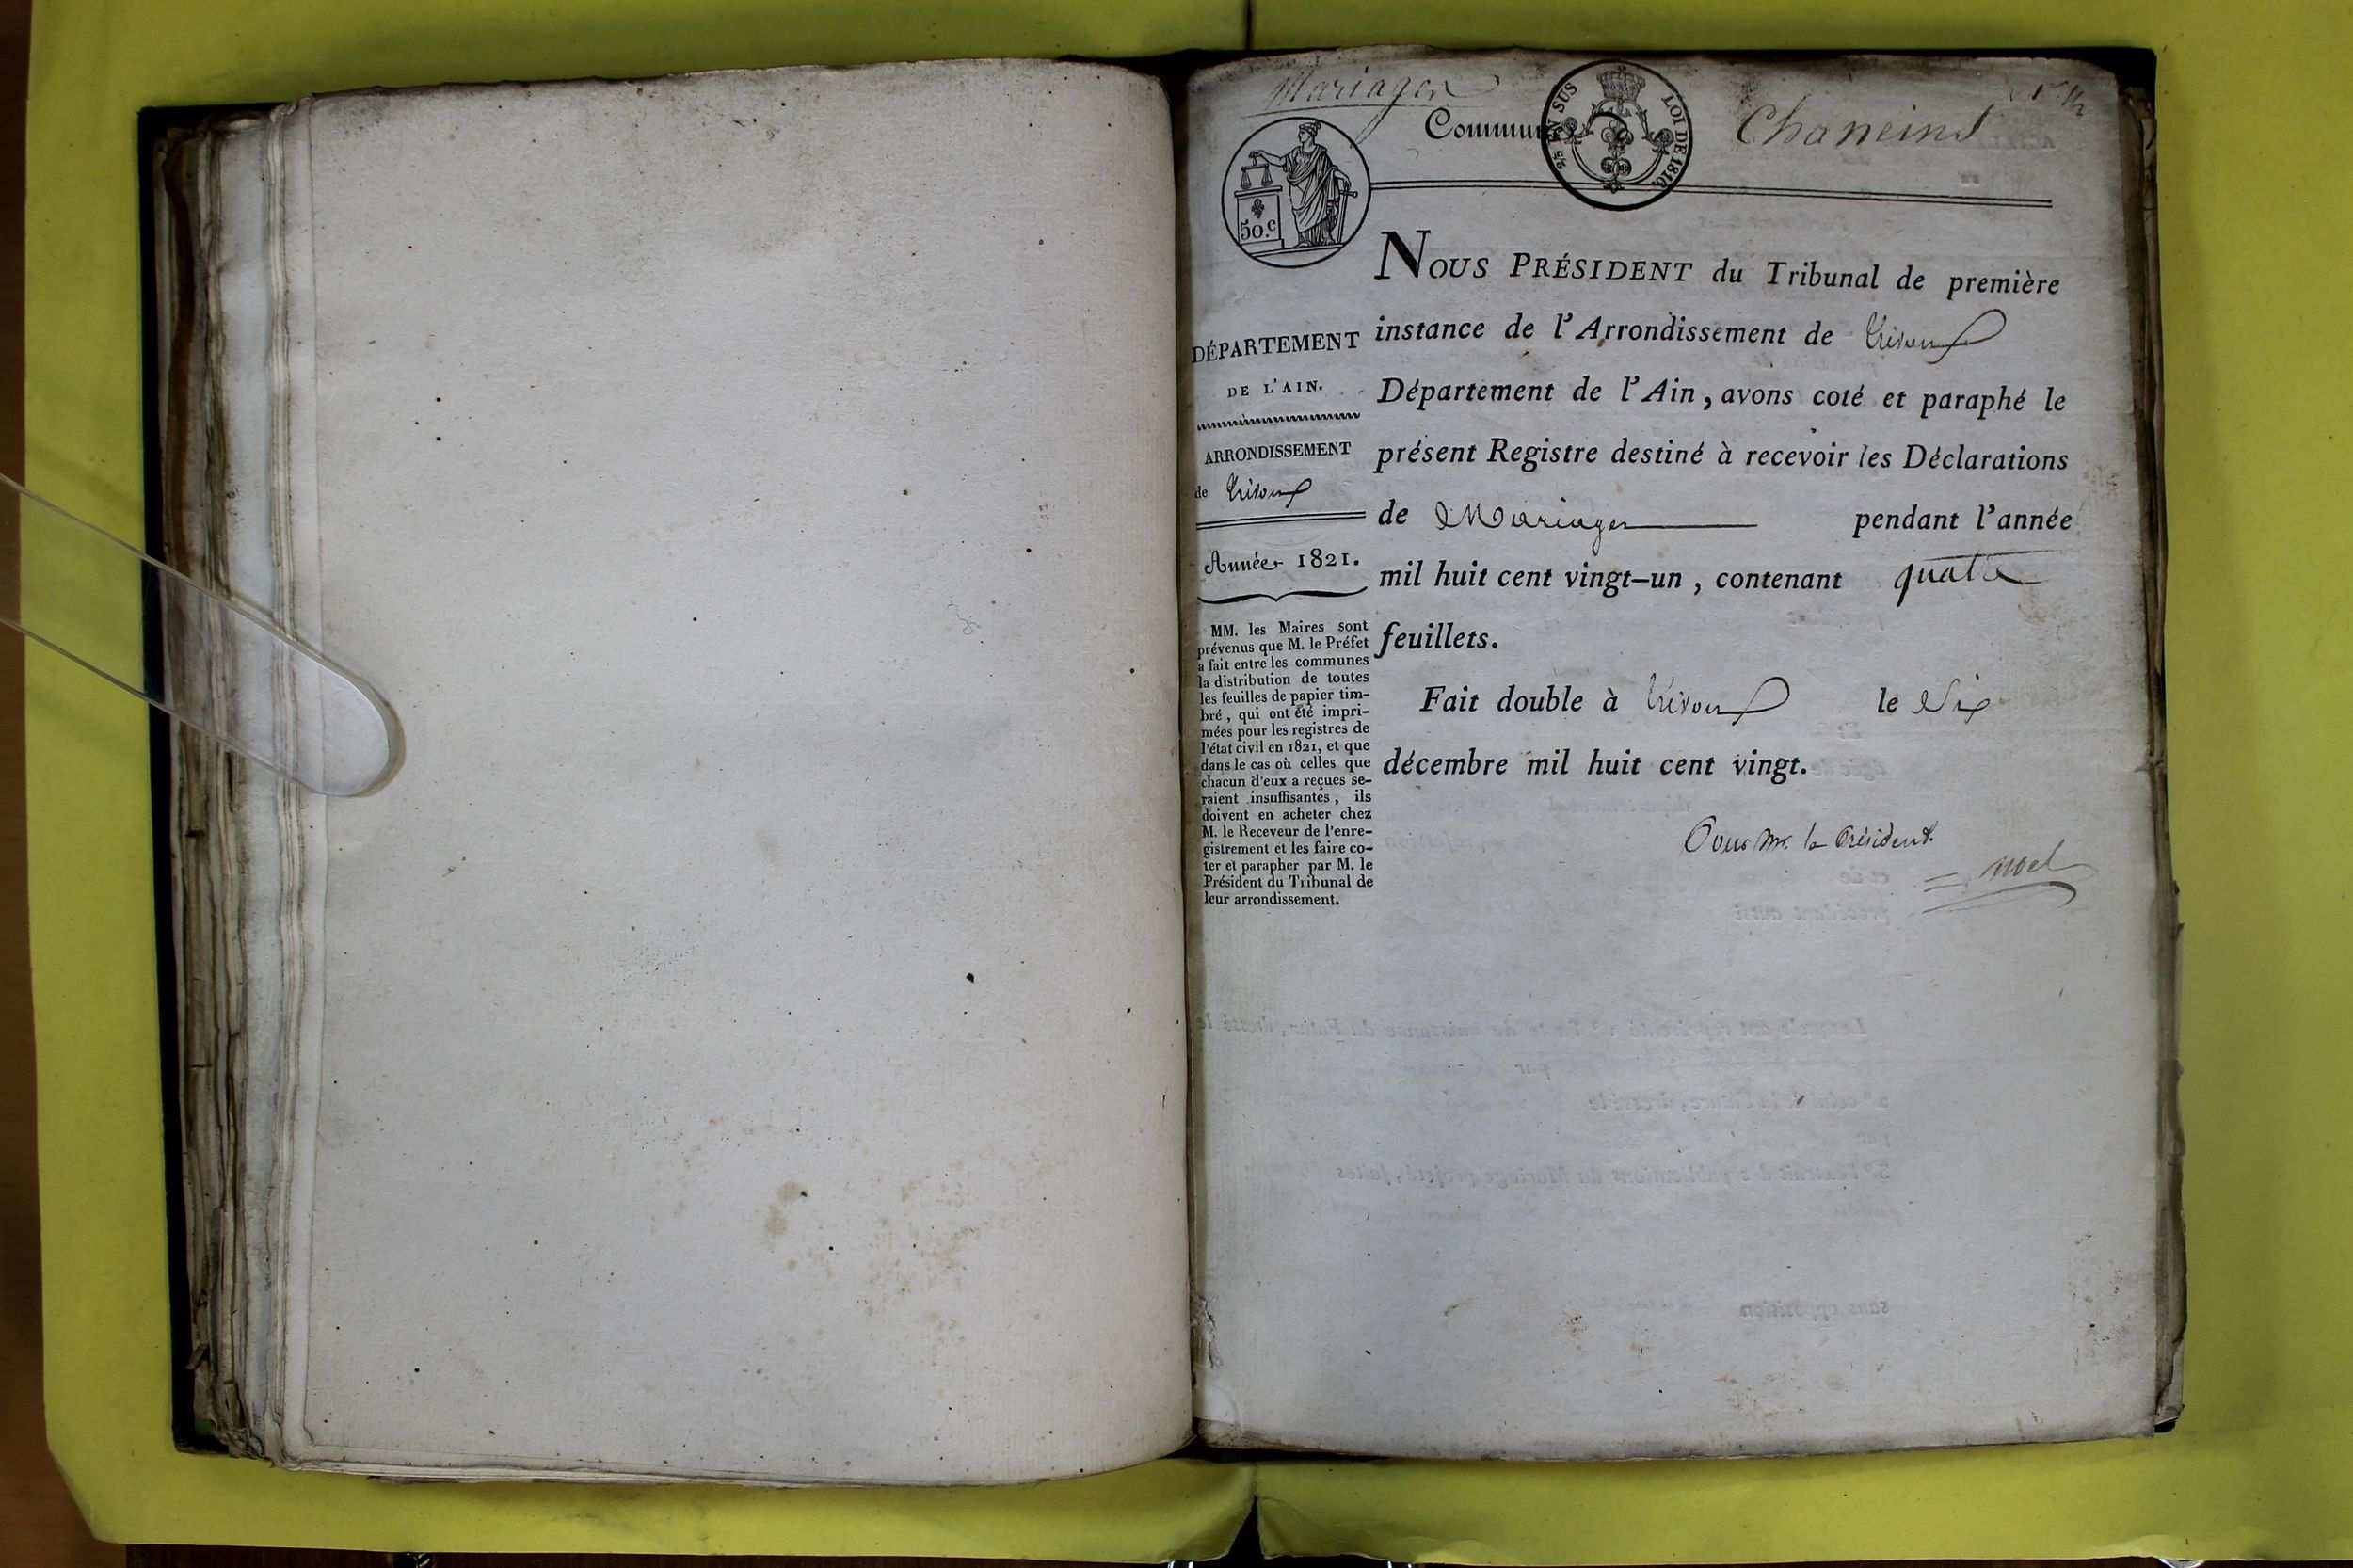 Mariages
Commune Chaneins
2/5 EN SUS
LOI DE 1816.
50.c
NOUS PRÉSIDENT du Tribunal de première
instance de l'Arrondissement de Trévoux
Département de l'Ain, avons coté et paraphé le
présent Registre destiné à recevoir les Déclarations
de Mariages pendant l'année
mil huit cent vingt-un, contenant quatre
feuillets.
Fait double à Trévoux le Dix
décembre mil huit cent vingt.
Pour Mr. le Président.
Noel
DÉPARTEMENT
DE L'AIN.
ARRONDISSEMENT
de Trévoux
Année 1821.
MM. les Maires sont
prévenus que M. le Préfet
a fait entre les communes
la distribution de toutes
les feuilles de papier tim-
bré, qui ont été impri-
mées pour les registres de
l'état civil en 1821, et que
dans le cas où celles que
chacun d'eux a reçues se-
raient insuffisantes, ils
doivent en acheter chez
M. le Receveur de l'enre-
gistrement et les faire co-
ter et parapher par M. le
Président du Tribunal de
leur arrondissement.